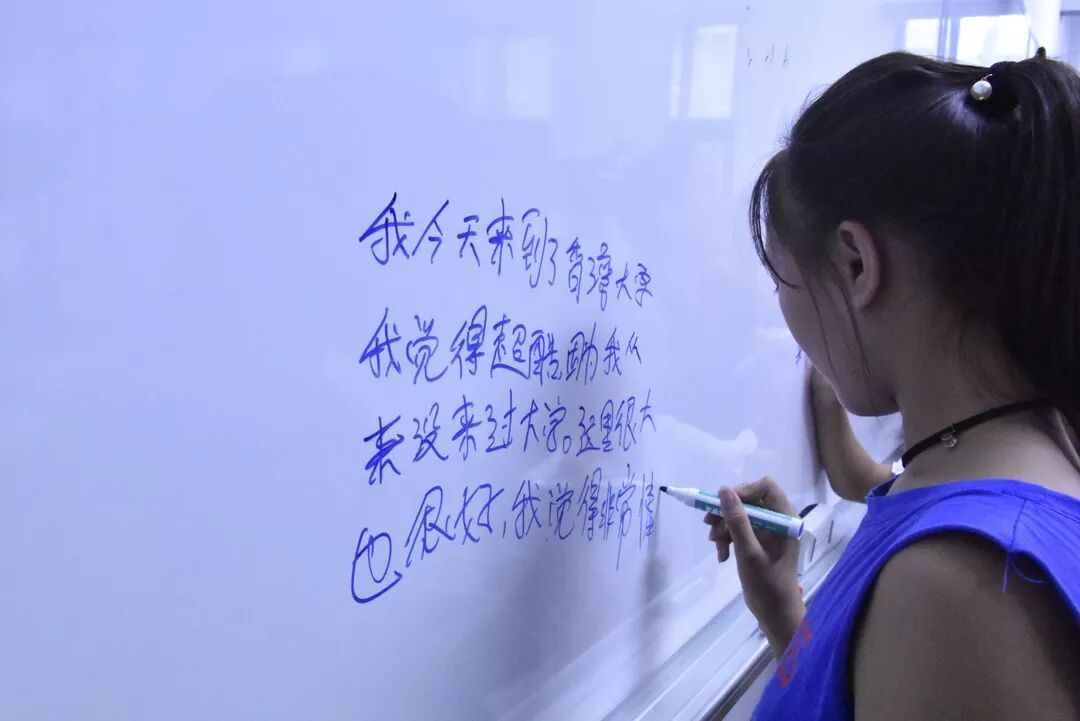 我今天来到了香大学
我觉得超酷因为我从
来没来过大学。这里很大
也很好,我觉得非常